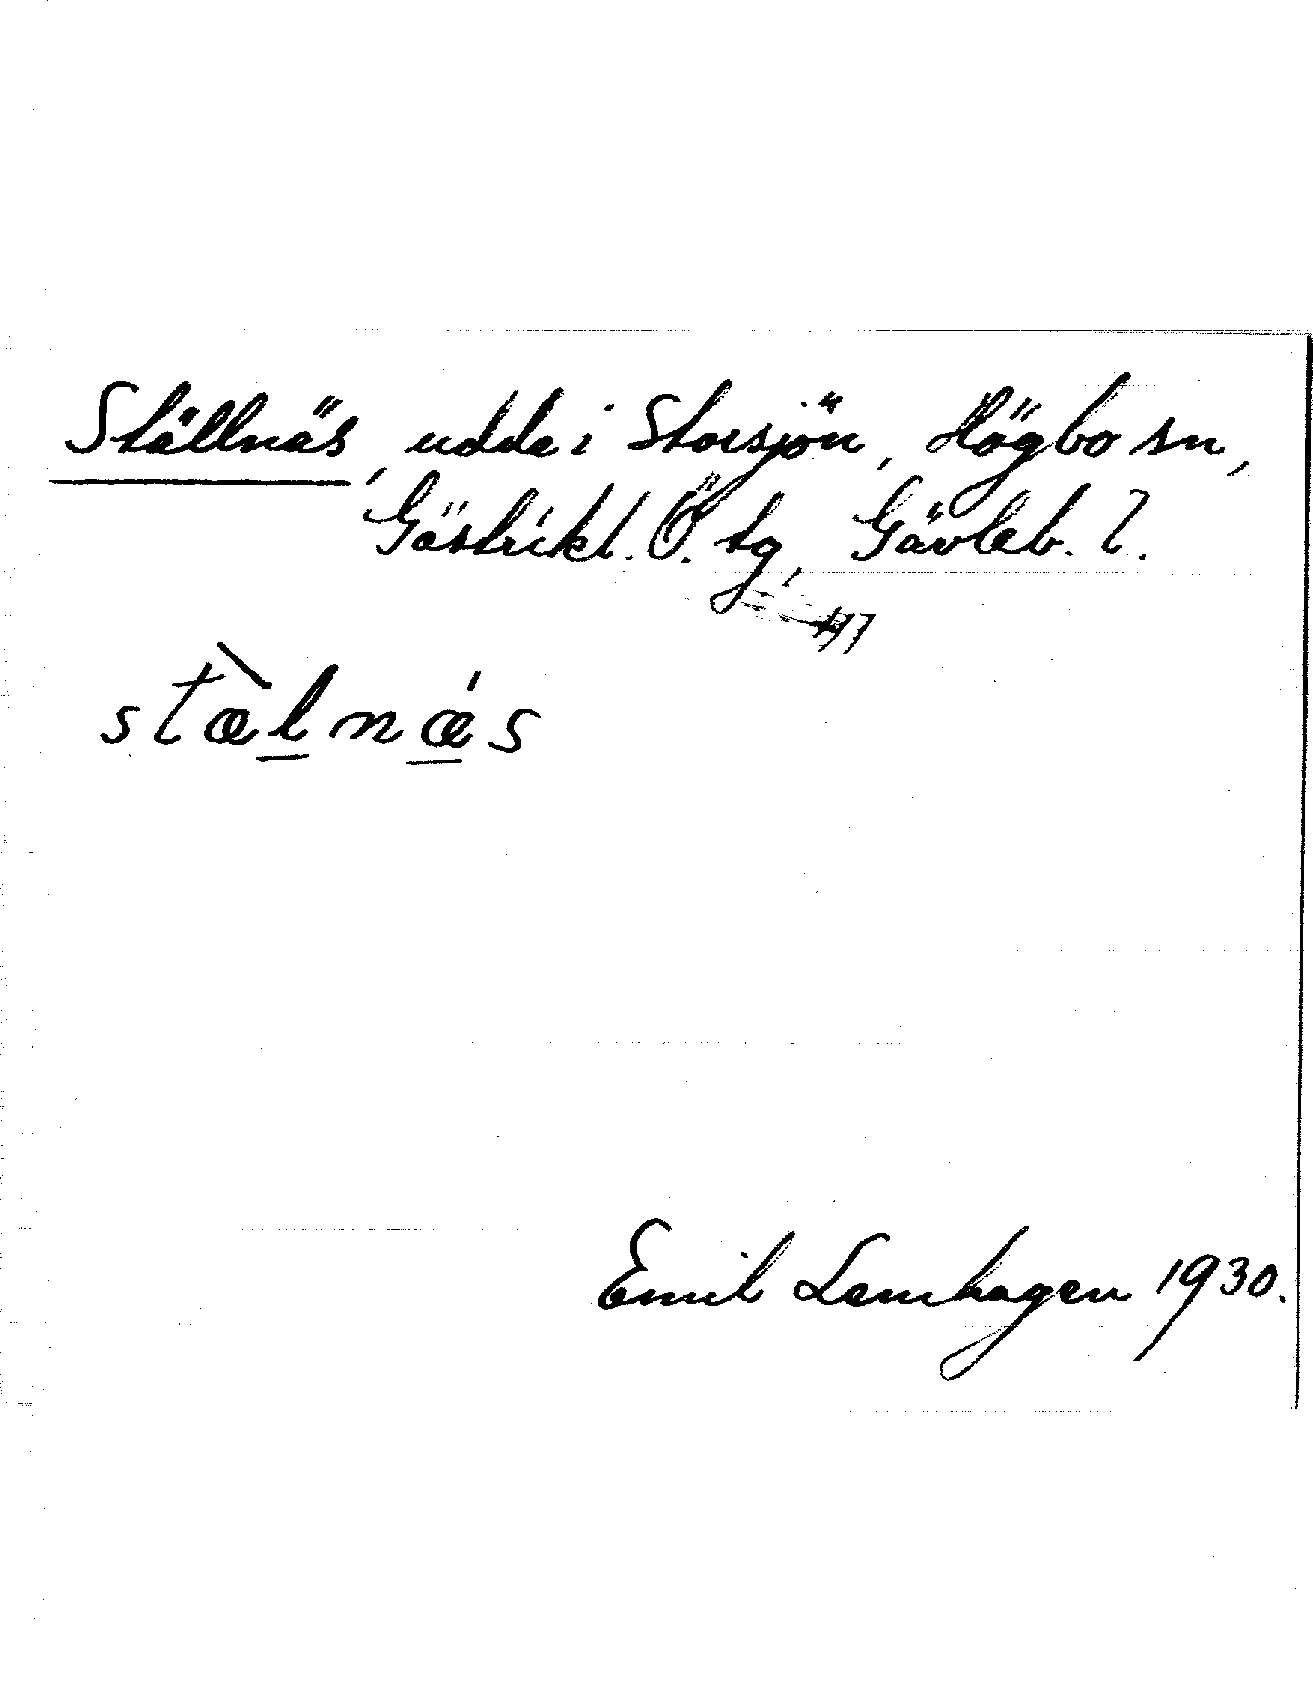 Ställnäs, udde i Storsjön, Högbo sn,
Gästrikl. Ö. tg, Gävleb. l.
stæ̀lnǽs
Emil Lemhagen 1930.